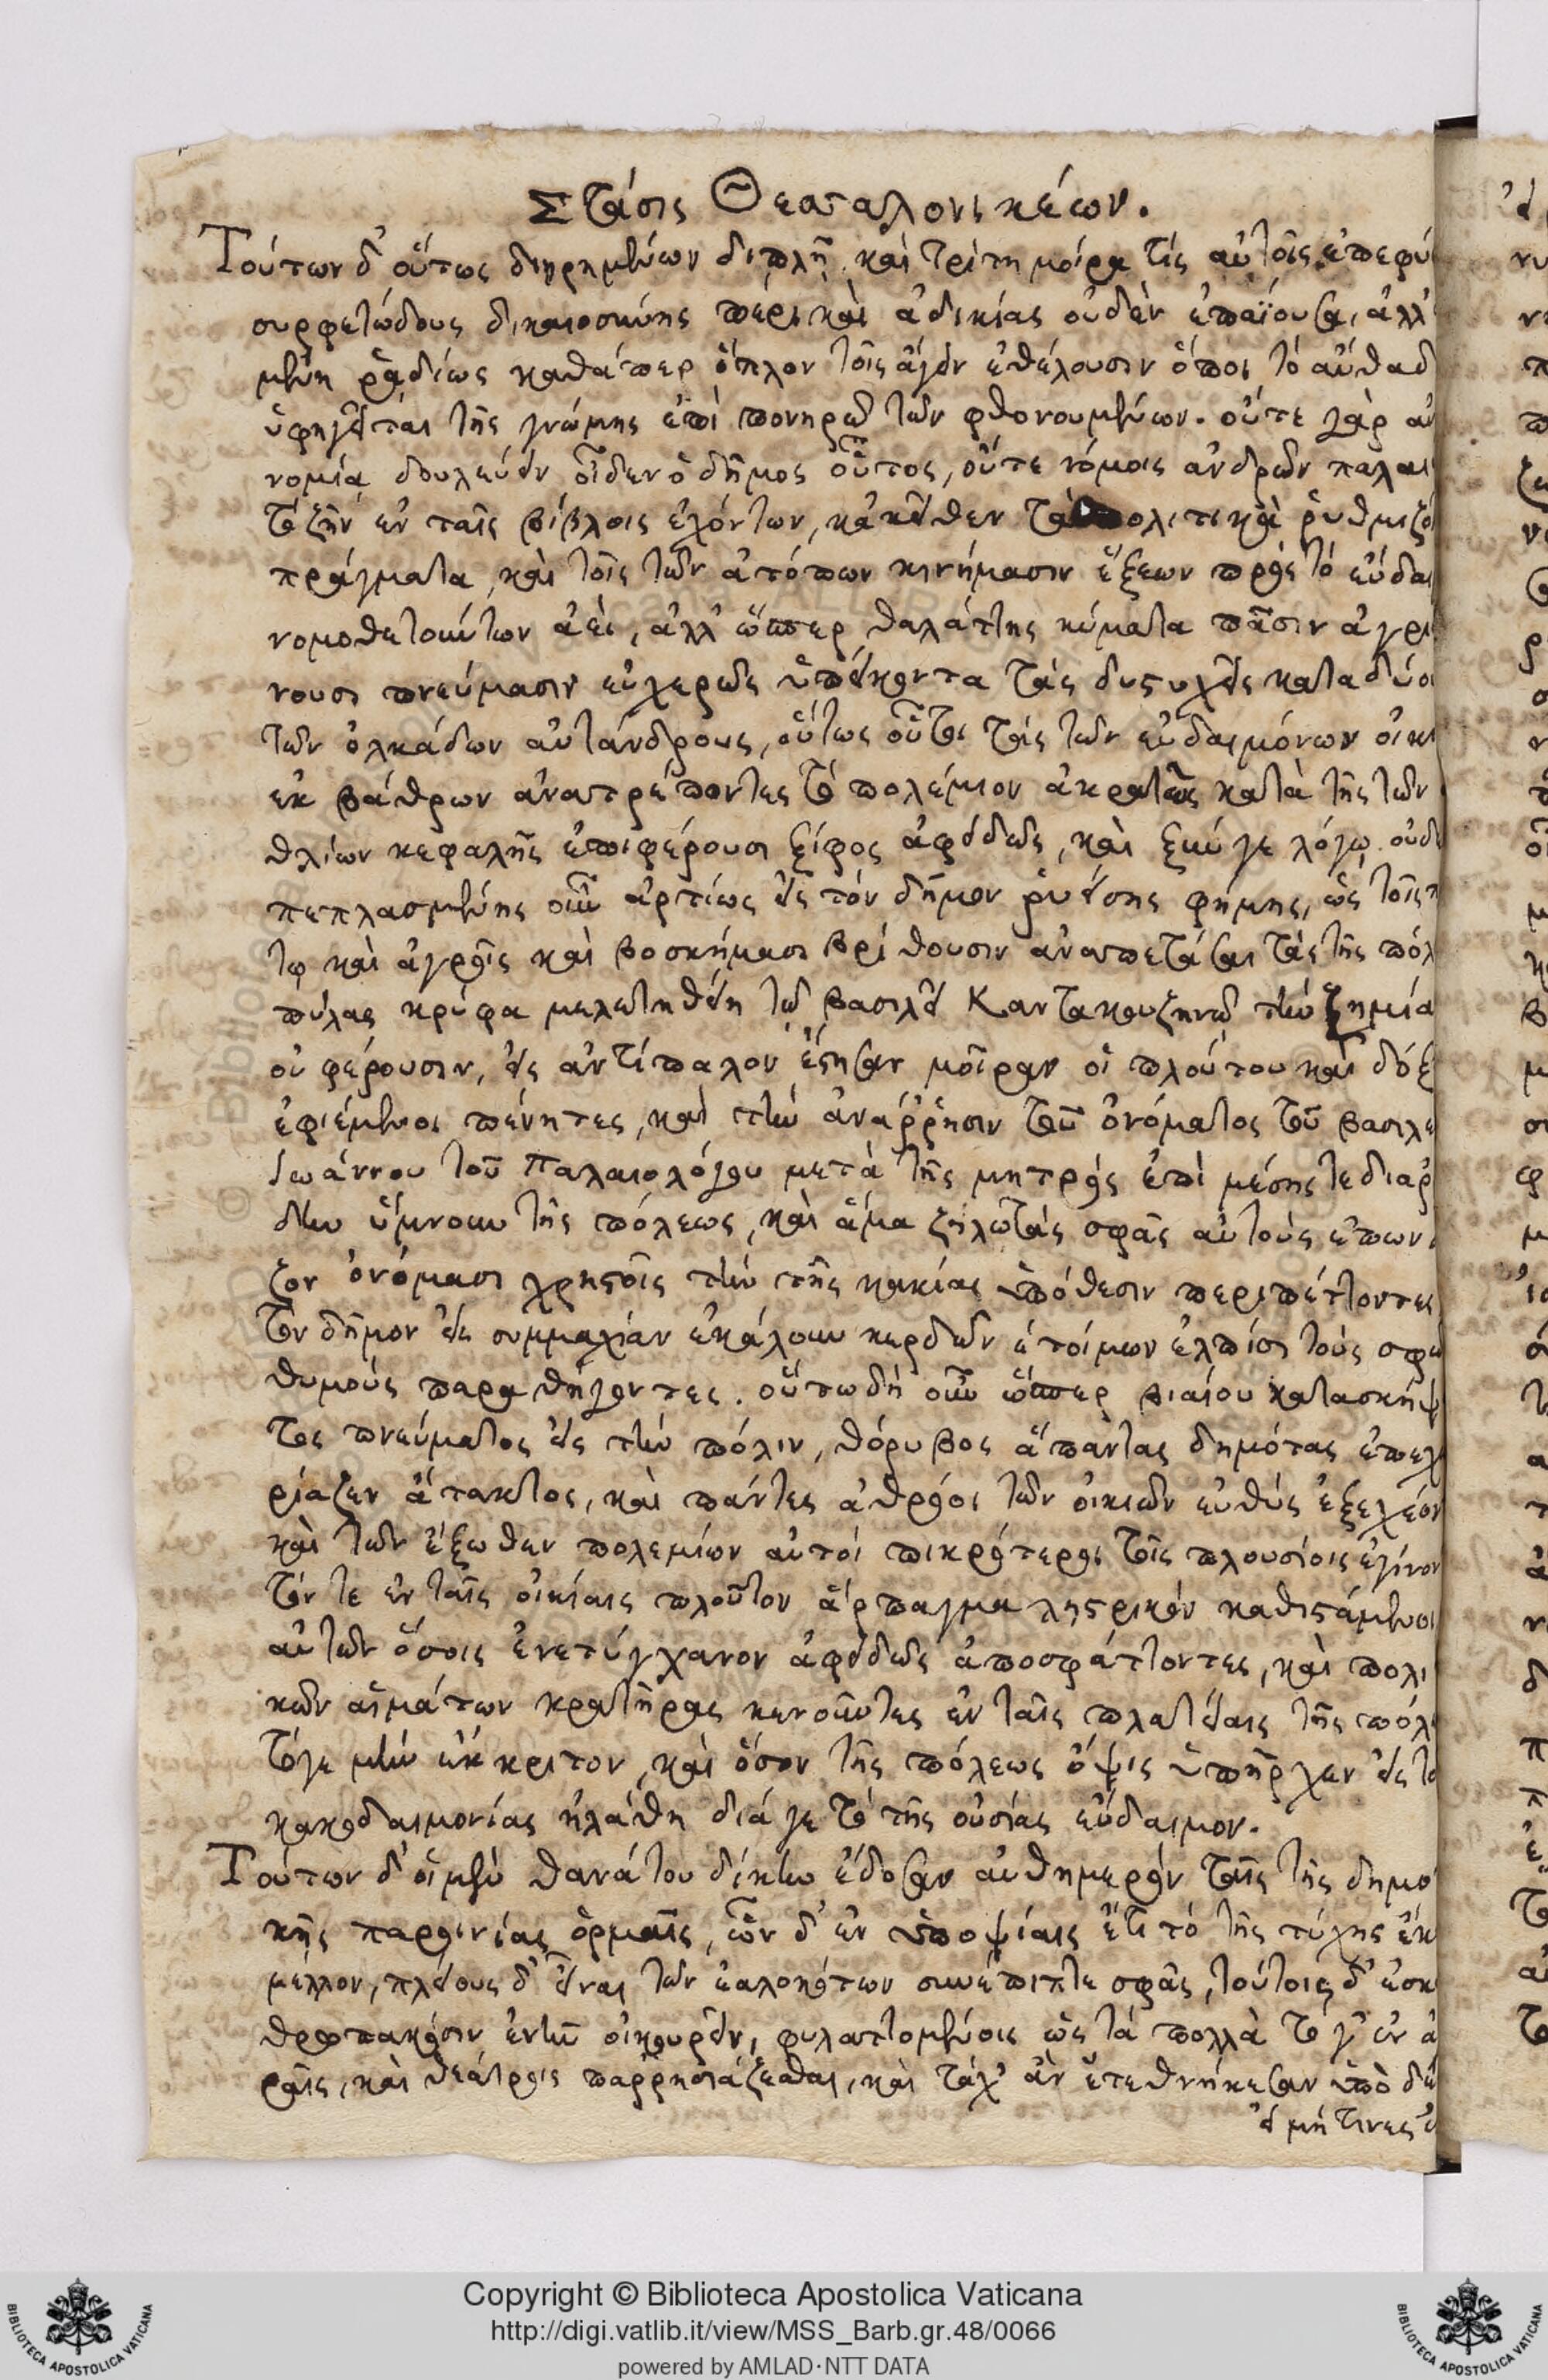 Στάσις Θεσσαλονικέων.
Τούτων δ' οὕτως διῃρημένων διπλῇ, καὶ τρίτη μοίρα τίς αὐτοῖς ἐπεφύ
συρφετώδους δικαιοσύνης πέρι καὶ ἀδικίας οὐδὲν ἐπαΐουσα, ἀλλ'
μένη ῥᾳδίως καθάπερ ὅπλον τοῖς ἄγειν ἐθέλουσιν ὅποι τὸ αὔθαδ
ὑφηγεῖται τῆς γνώμης ἐπὶ πονηρῷ τῶν φθονουμένων. οὔτε γὰρ αὐ
νομίᾳ δουλεύειν οἶδεν ὁ δῆμος οὗτος, οὔτε νόμοις ἀνδρῶν παλαι
τὸ ζῆν ἐν ταῖς βίβλοις ἐχόντων, κἀκεῖθεν τὰ πολιτικὰ ῥυθμιζό
πράγματα, καὶ τοῖς τῶν ἀτόπων κινήμασιν ἕξεων πρὸς τὸ εὔδαι
νομοθετούντων ἀεὶ, ἀλλ' ὥσπερ θαλάττης κύματα πᾶσιν ἀγρι
νουσι πνεύμασιν εὐχερῶς ὑπείκοντα τὰς δυστυχεῖς καταδύου
τῶν ὁλκάδων αὐτάνδρους, οὕτως οὗτοι τὰς τῶν εὐδαιμόνων οἰκι
ἐκ βάθρων ἀνατρέποντες τὸ πολέμιον ἀκρατῶς κατὰ τῆς τῶν
θλίων κεφαλῆς ἐπιφέρουσι ξίφος ἀφειδῶς, καὶ ξὺν γε λόγῳ οὐδε
πεπλασμένης οὖν ἀρτίως εἰς τὸν δῆμον ῥυείσης φήμης, ὡς τοῖς π
τῳ καὶ ἀγροῖς καὶ βοσκήμασι βρίθουσιν ἀναπετάσαι τὰς τῆς πόλ
πύλας κρύφα μελετηθείη τῷ βασιλεῖ Καντακουζηνῷ τὴν ζημία
οὐ φέρουσιν, εἰς ἀντίπαλον ἔστησαν μοῖραν οἱ πλούτου καὶ δόξ
ἐφιέμενοι πένητες, καὶ τὴν ἀνάῤῥησιν τοῦ ὀνόματος τοῦ βασιλέ
Ἰωάννου τοῦ Παλαιολόγου μετὰ τῆς μητρὸς ἐπὶ μέσης τε διαῤ
δην ὕμνουν τῆς πόλεως, καὶ ἅμα ζηλωτὰς σφᾶς αὐτοὺς ἐπωνό
ζον ὀνόμασι χρηστοῖς τὴν τῆς κακίας ὑπόθεσιν περιπέττοντες
τὸν δῆμον εἰς συμμαχίαν ἐκάλουν κερδῶν ἑτοίμων ἐλπίσι τοὺς σφῶ
θυμοὺς παραθήγοντες. οὕτω δὴ οὖν ὥσπερ βιαίου κατασκήψ
τος πνεύματος εἰς τὴν πόλιν, θόρυβος ἅπαντας δημότας ἐπεχ
ρίαζεν ἄτακτος, καὶ πάντες ἀθρόοι τῶν οἰκιῶν εὐθὺς ἐξεχέον
καὶ τῶν ἔξωθεν πολεμίων αὐτοὶ πικρότεροι τοῖς πλουσίοις ἐγίνον
τόν τε ἐν ταῖς οἰκίαις πλοῦτον ἅρπαγμα λῃστρικὸν καθιστάμενοι
αὐτῶν ὅσοις ἐνετύγχανον ἀφειδῶς ἀποσφάττοντες, καὶ πολι
κῶν αἱμάτων κρατῆρας κενοῦντες ἐν ταῖς πλατείαις τῆς πόλε
τόγε μὴν ἔκκριτον, καὶ ὅσον τῆς πόλεως ὄψις ὑπῆρχεν εἰς το
κακοδαιμονίας ἠλάθη διά γε τὸ τῆς οὐσίας εὔδαιμον.
Τούτων δ' οἱ μὲν θανάτου δίκην ἔδοσαν αὐθημερὸν ταῖς τῆς δημο
κῆς παροινίας ὁρμαῖς, ὧν δ' ἐν ὑποψίαις ἔτι τὸ τῆς τύχης ἔκ
μέλλον, πλείους δ' εἶναι τῶν ἑαλοκότων συνέπιπτε σφᾶς, τούτοις δ' ἐσκ
θρωπακόσιν ἐντῷ οἰκουρεῖν, φυλαττομένοις ὡς τὰ πολλὰ τό γ' ἐν ἀ
ραῖς, καὶ θεάτροις παῤῥησιάζεσθαι, καὶ τάχ' ἂν ἐτεθνήκεσαν ὑπὸ δέ
εἰ μή τινες ἐ
Copyright © Biblioteca Apostolica Vaticana
http://digi.vatlib.it/view/MSS_Barb.gr.48/0066
powered by AMLAD·NTT DATA